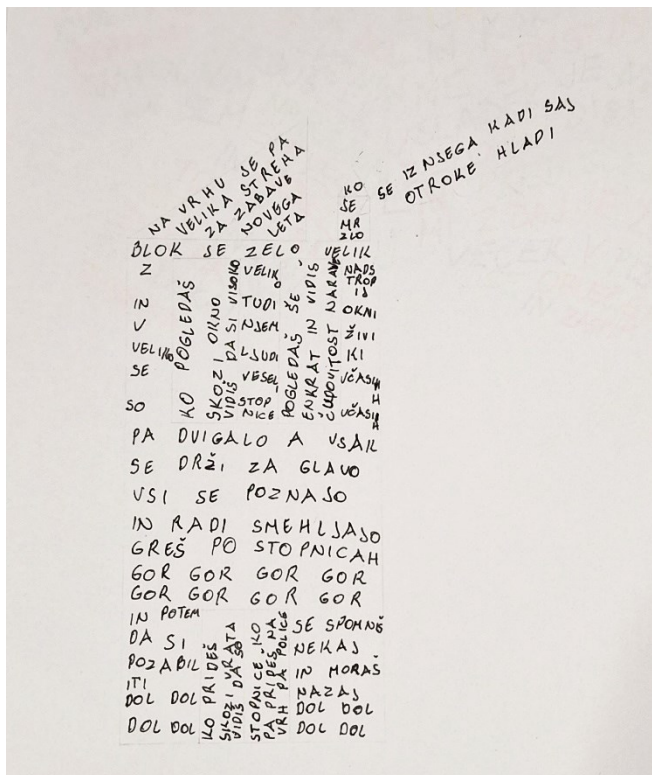 NA VRHU JE PA
VELIKA STREHA
ZA ZABAVE
NOVEGA
LETA
KO
ŠE
MR
ZLO
SE IZ NJEGA KADI SAJ
OTROKE HLADI
BLOK JE ZELO VELIK
Z
IN
V
VELIKO
SE
SO
KO POGLEDAŠ
SKOZI OKNO
VIDIŠ DA SI VISOKO
VELIKO
TUDI
NJEM
LJUDI
VESEL
STOP
NICE
POGLEDAŠ ŠE
ENKRAT IN VIDIŠ
ČUDOVITOST NARAVE
NADS
TROP
IJ
OKNI
ŽIVI
KI
VČASIH
VČASIH
PA DVIGALO A VSAK
SE DRŽI ZA GLAVO
VSI SE POZNAJO
IN RADI SMEHLJAJO
GREŠ PO STOPNICAH
GOR GOR GOR GOR
GOR GOR GOR GOR
IN POTEM
DA SI
POZABIL
ITI
DOL DOL
DOL DOL
KO PRIDEŠ
SKOZI VRATA
VIDIŠ DA SO
STOPNICE KO
PA PRIDEŠ NA
VRH PA POLICE
SE SPOMNIŠ
NEKAJ
IN MORAŠ
NAZAJ
DOL DOL
DOL DOL